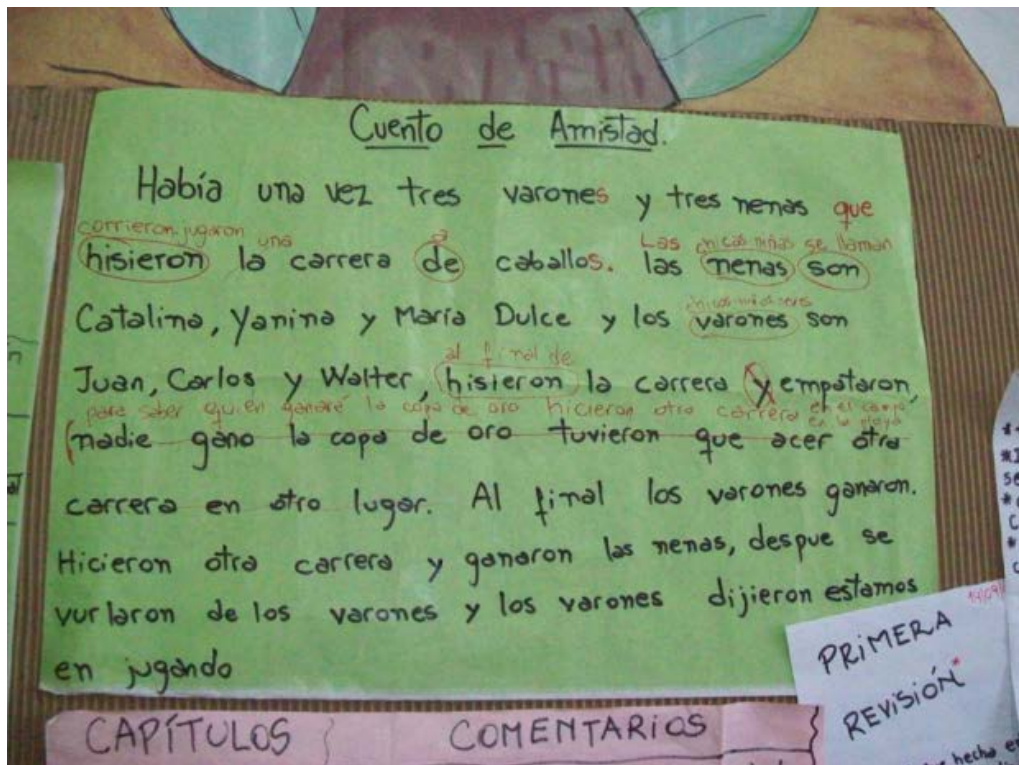 Cuento de Amistad.
Había una vez tres varones y tres nenas que
corrieron jugaron una a Las chicas niñas se llaman
hisieron la carrera de caballos. las nenas son
Catalina, Yanina y María Dulce y los varones son
al final de
Juan, Carlos y Walter, hisieron la carrera y empataron,
para saber quien ganaré la copa de oro hicieron otra carrera en el campo
en la playa
nadie gano la copa de oro tuvieron que acer otra
carrera en otro lugar. Al final los varones ganaron.
Hicieron otra carrera y ganaron las nenas, despue se
vurlaron de los varones y los varones dijieron estamos
en jugando
PRIMERA
REVISIÓN*
CAPÍTULOS COMENTARIOS